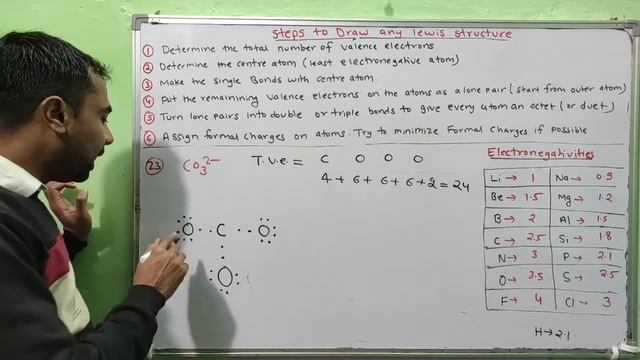 Steps to Draw any lewis structure
① Determine the total number of valence electrons
② Determine the centre atom (least electronegative atom)
③ Make the single Bonds with centre atom.
④ Put the remainining valence electrons on the atoms as a lone pair (start from outer atom)
⑤ Turn lone pairs into double or triple bonds to give every atom an octet (or duet)
⑥ Assign formal charges on atoms. Try to minimize Formal charges if possible
23 CO₃²⁻ T.V.e = C O O O
4 + 6 + 6 + 6 + 2 = 24
O C O
O
Electronegativities
Li → 1 Na → 0.9
Be → 1.5 Mg → 1.2
B → 2 Al → 1.5
C → 2.5 Si → 1.8
N → 3 P → 2.1
O → 3.5 S → 2.5
F → 4 Cl → 3
H → 2.1